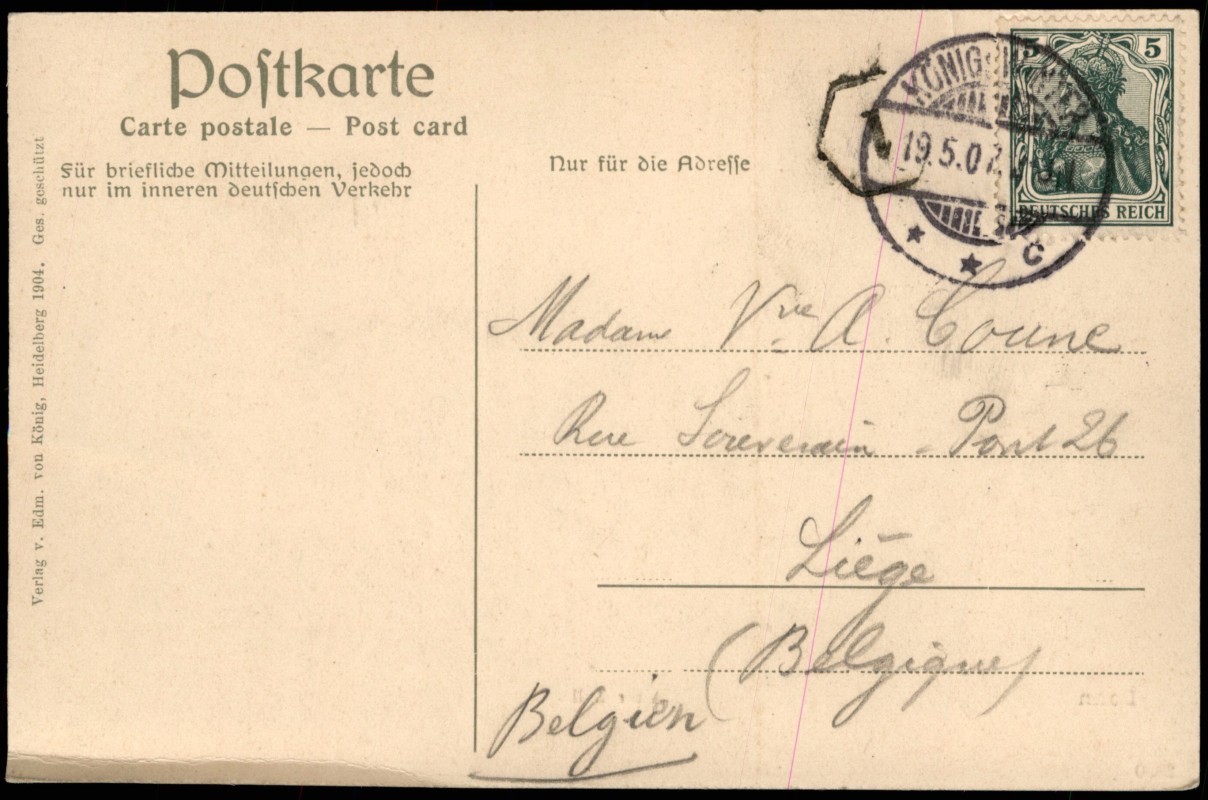 Postkarte
Carte postale — Post card
Für briefliche Mitteilungen, jedoch
nur im inneren deutschen Verkehr
Nur für die Adresse
Verlag v. Edm. von König, Heidelberg 1904. Ges. geschützt
T
19.5.07
C
5 5
DEUTSCHES REICH
Madame Vve A. Coune
Rue Souverain-Pont 26
Liége
(Belgique)
Belgien